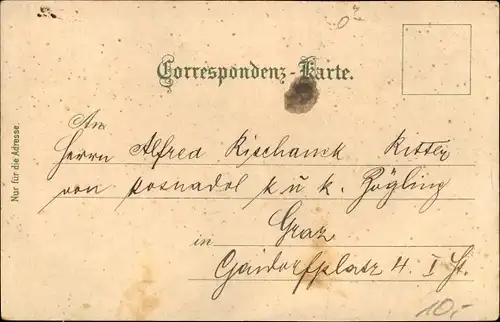 Correspondenz-Karte.
Nur für die Adresse.
An
Herrn Alfred Rischanek Ritter
von posnadol k u k. Zögling
in Graz
Geidorfplatz 4. I St.
10.-